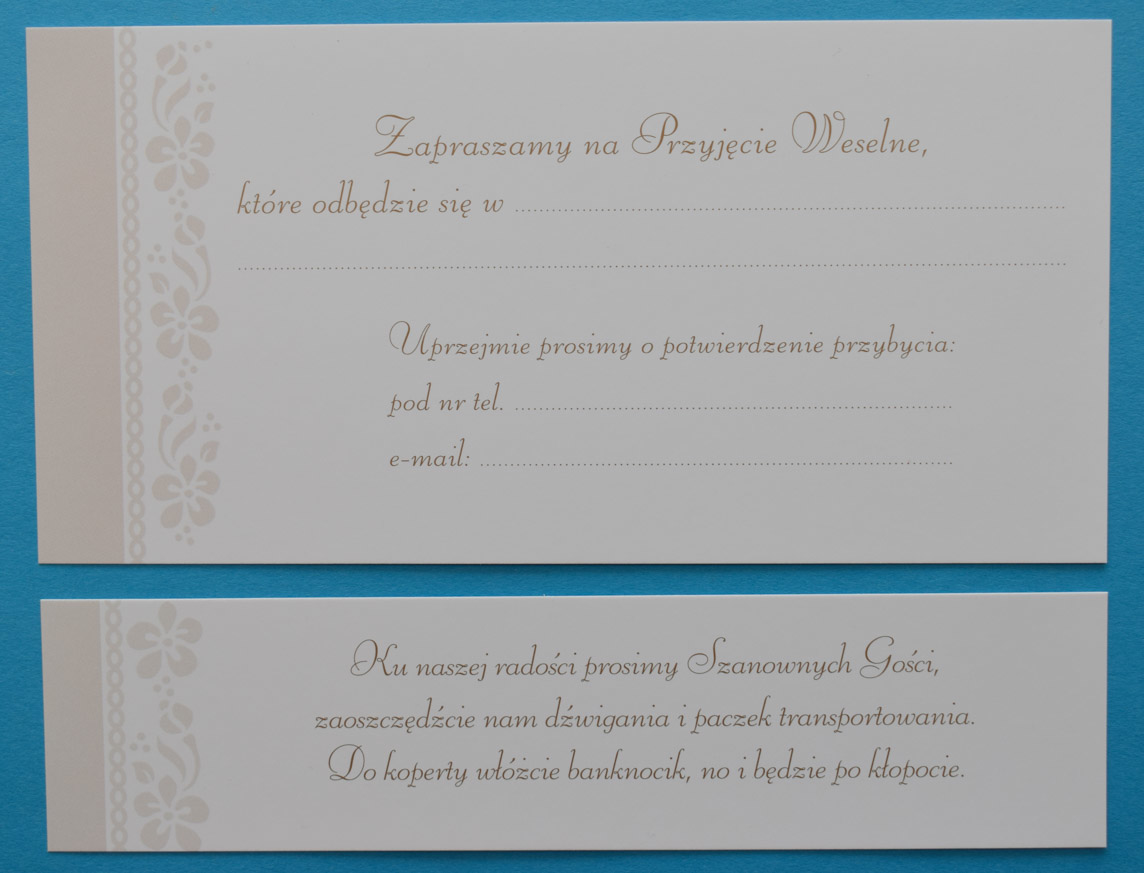 Zapraszamy na Przyjęcie Weselne,
które odbędzie się w ..........................................................................
..........................................................................
Uprzejmie prosimy o potwierdzenie przybycia:
pod nr tel. ..........................................................................
e-mail: ..........................................................................
Ku naszej radości prosimy Szanownych Gości,
zaoszczędźcie nam dźwigania i paczek transportowania.
Do koperty włóżcie banknocik, no i będzie po kłopocie.